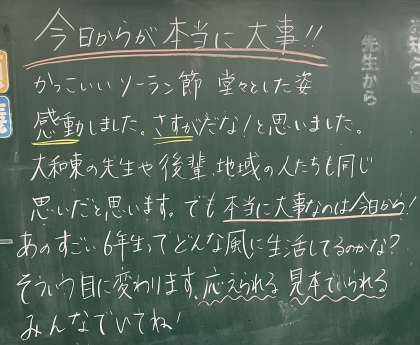 今日からが本当に大事!!
かっこいいソーラン節 堂々とした姿
感動しました。さすがだな!と思いました。
大和東の先生や後輩、地域の人たちも同じ
思いだと思います。でも本当に大事なのは今日から!
あのすごい6年生ってどんな風に生活してるのかな?
そういう目に変わります。応えられる 見本でいられる
みんなでいてね!
先生から